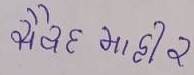 સૈયદ માહીર